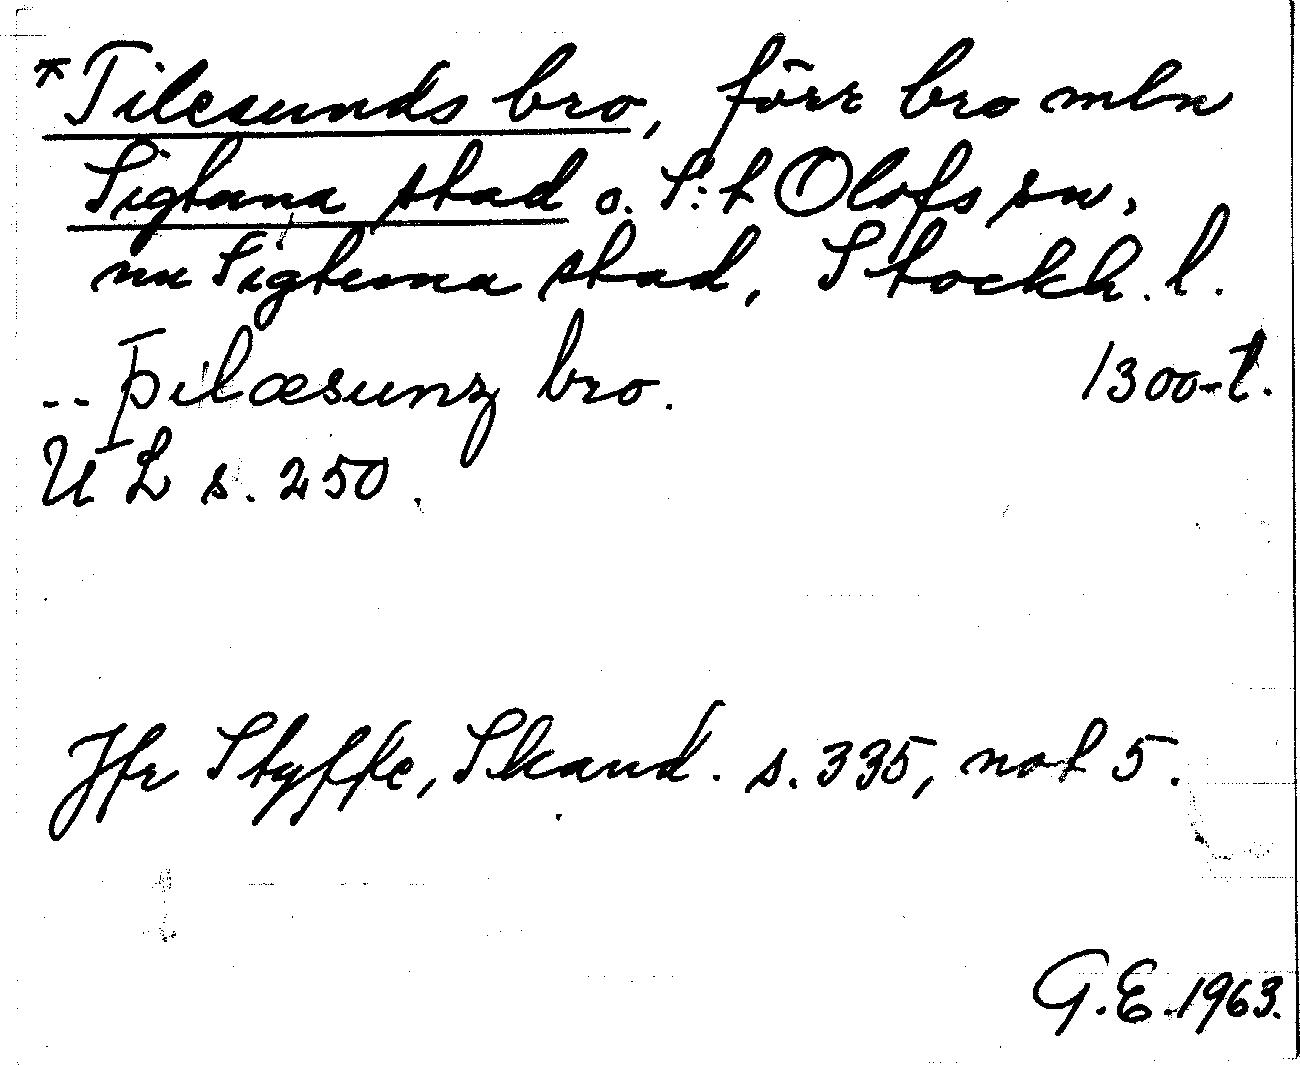 *Tilesunds bro, förr bro mln
Sigtuna stad o. S:t Olofs sn,
nu Sigtuna stad, Stockh. l.
-- þilæsunz bro. 1300-t.
UL s. 250.
Jfr Styffe, Skand. s. 335, not 5.
G.E. 1963.